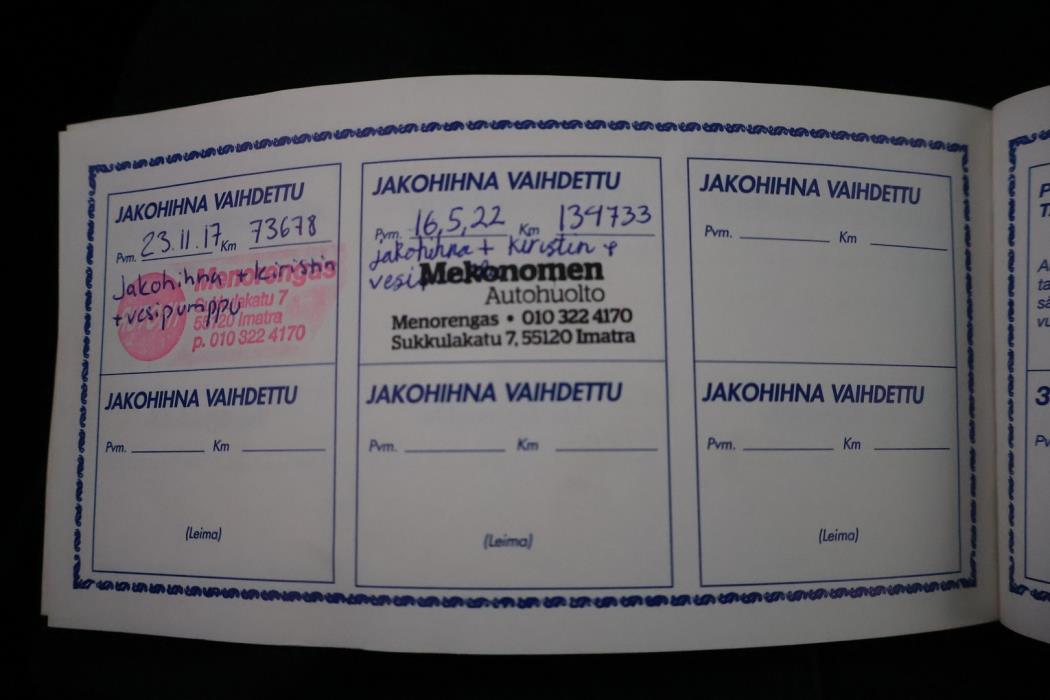 JAKOHIHNA VAIHDETTU
Pvm. 23.11.17 Km 73678
Jakohihna + kiristin
+ vesipumppu
Menorengas
Sukkulakatu 7
55120 Imatra
p. 010 322 4170
JAKOHIHNA VAIHDETTU
Pvm. 16,5,22 Km 134733
jakohihna + kiristin +
Mekonomen
Autohuolto
Menorengas • 010 322 4170
Sukkulakatu 7, 55120 Imatra
JAKOHIHNA VAIHDETTU
Pvm. Km
JAKOHIHNA VAIHDETTU
Pvm. Km
(Leima)
JAKOHIHNA VAIHDETTU
Pvm. Km
(Leima)
JAKOHIHNA VAIHDETTU
Pvm. Km
(Leima)